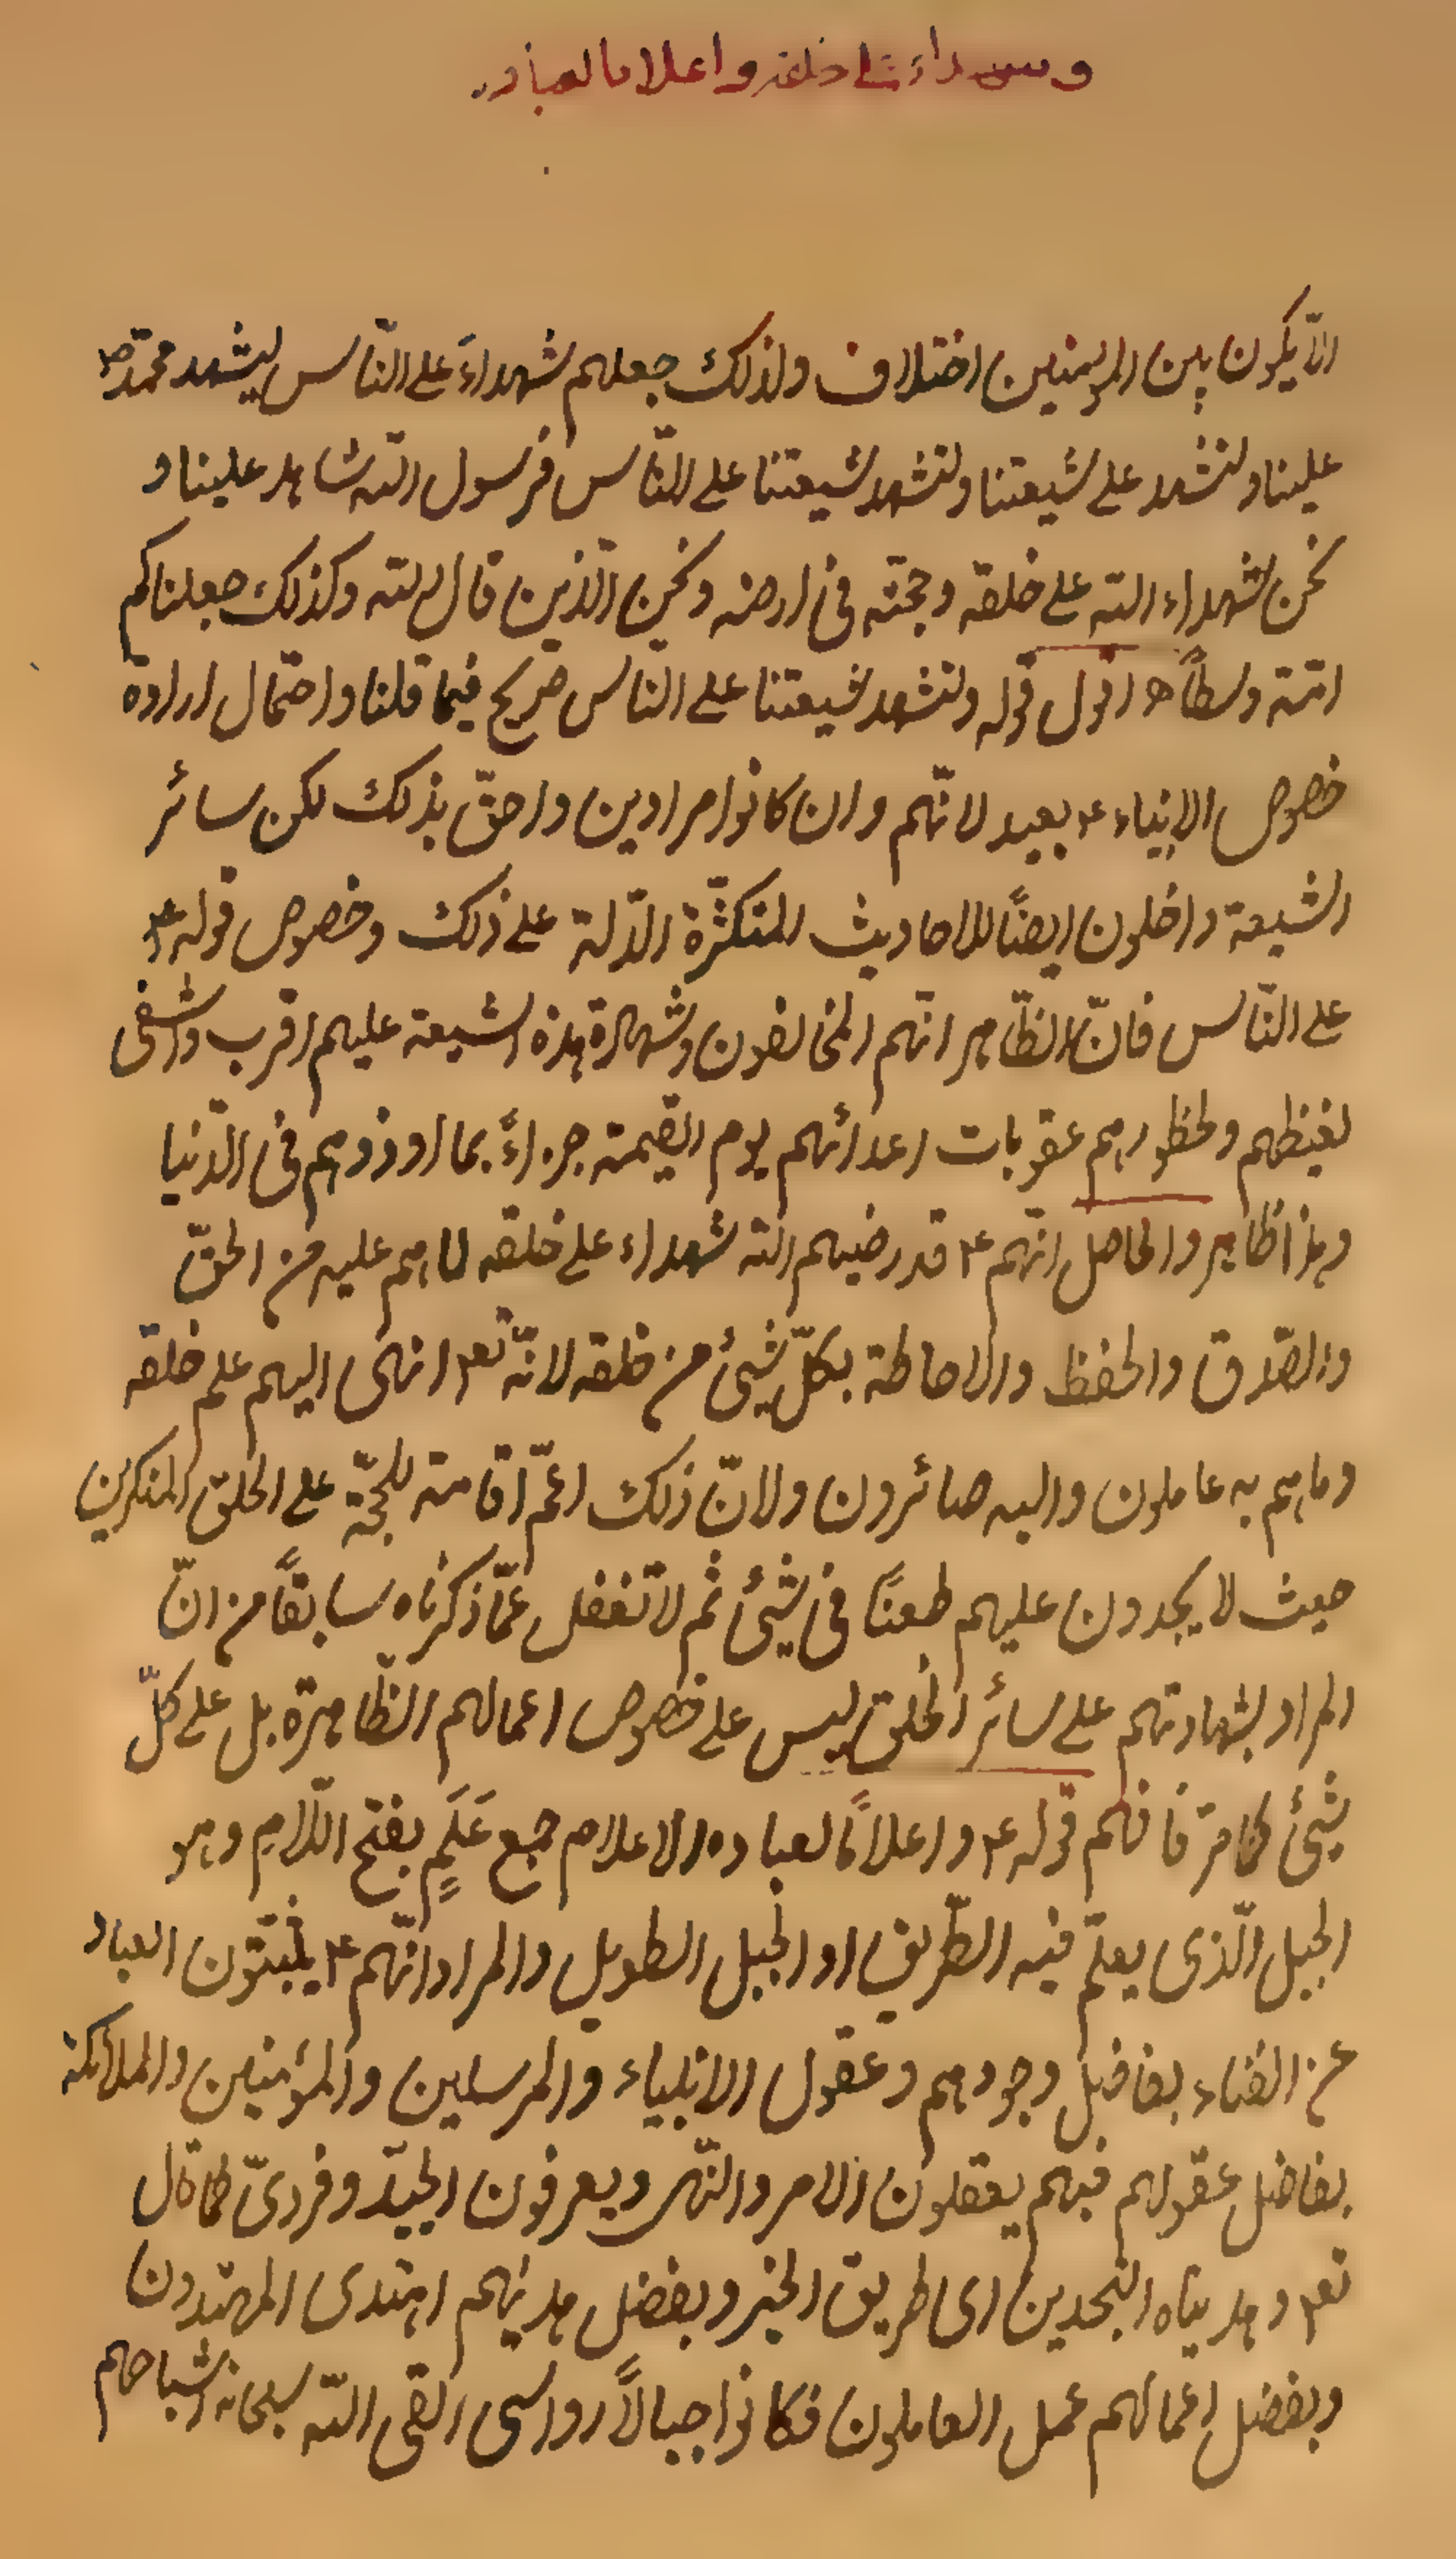 وشهداء على خلقه واعلاما لعباده
الّا يكون بين المؤمنين اختلاف ولذلك جعلهم شهداءَ على النّاس ليشهد محمّد ص
علينا ولنشهد على شيعتنا ولتشهد شيعتنا على النّاس فرسول الله شاهد علينا و
نحن شهداء الله على خلقه وحجّته فى ارضه ونحن الّذين قال الله وكذلك جعلناكم
امّة وسطاً ه اقول قوله ولتشهد شيعتنا على النّاس صريح فيما قلنا واحتمال ارادة
خصوص الانبياء ع بعيد لانّهم وان كانوا مرادين واحقّ بذلك لكن سائر
الشيعة داخلون ايضًا للاحاديث المتكثّرة الدّالة على ذلك وخصوص قوله ع
على النّاس فانّ الظّاهر انّهم المخالفون وشهادة هذه الشيعة عليهم اقرب واشفى
لغيظهم ولحظورهم عقوبات اعدائهم يوم القيمة جزاءً بما اوذوهم فى الدّنيا
وهذا ظاهر والحاصل انّهم ع قد رضيهم الله شهداء على خلقه لما هم عليه من الحقّ
والصّدق والحفظ والاحاطة بكلّ شيئ من خلقه لانّه تع انهى اليهم علم خلقه
وما هم به عاملون واليه صائرون ولانّ ذلك اعمّ اقامة للحجّة على الخلق المنكرين
حيث لا يجدون عليهم طعنًا فى شيئ ثم لا تغفل عمّا ذكرناه سابقًا من انّ
المراد بشهادتهم على سائر الخلق ليس على خصوص اعمالهم الظّاهرة بل على كلّ
شيئ كما مرّ فافهم قوله ع واعلامًا لعباده الاعلام جمع عَلَمٍ بفتح اللّام وهو
الجبل الّذى يعلم فيه الطّريق او الجبل الطويل والمراد انّهم ع يثبّتون العباد
عن الفناء بفاضل وجودهم وعقول الانبياء والمرسلين والمؤمنين والملائكة
بفاضل عقولهم فبهم يعقلون الامر والنّهى ويعرفون الجيّد وفردىّ كما قال
تع وهديناه النّجدين اى طريق الخير وبفضل هدايتهم اهتدى المهتدون
وبفضل اعمالهم عمل العاملون فكانوا جبالاً رواسى القى الله سبحانه اشباحهم